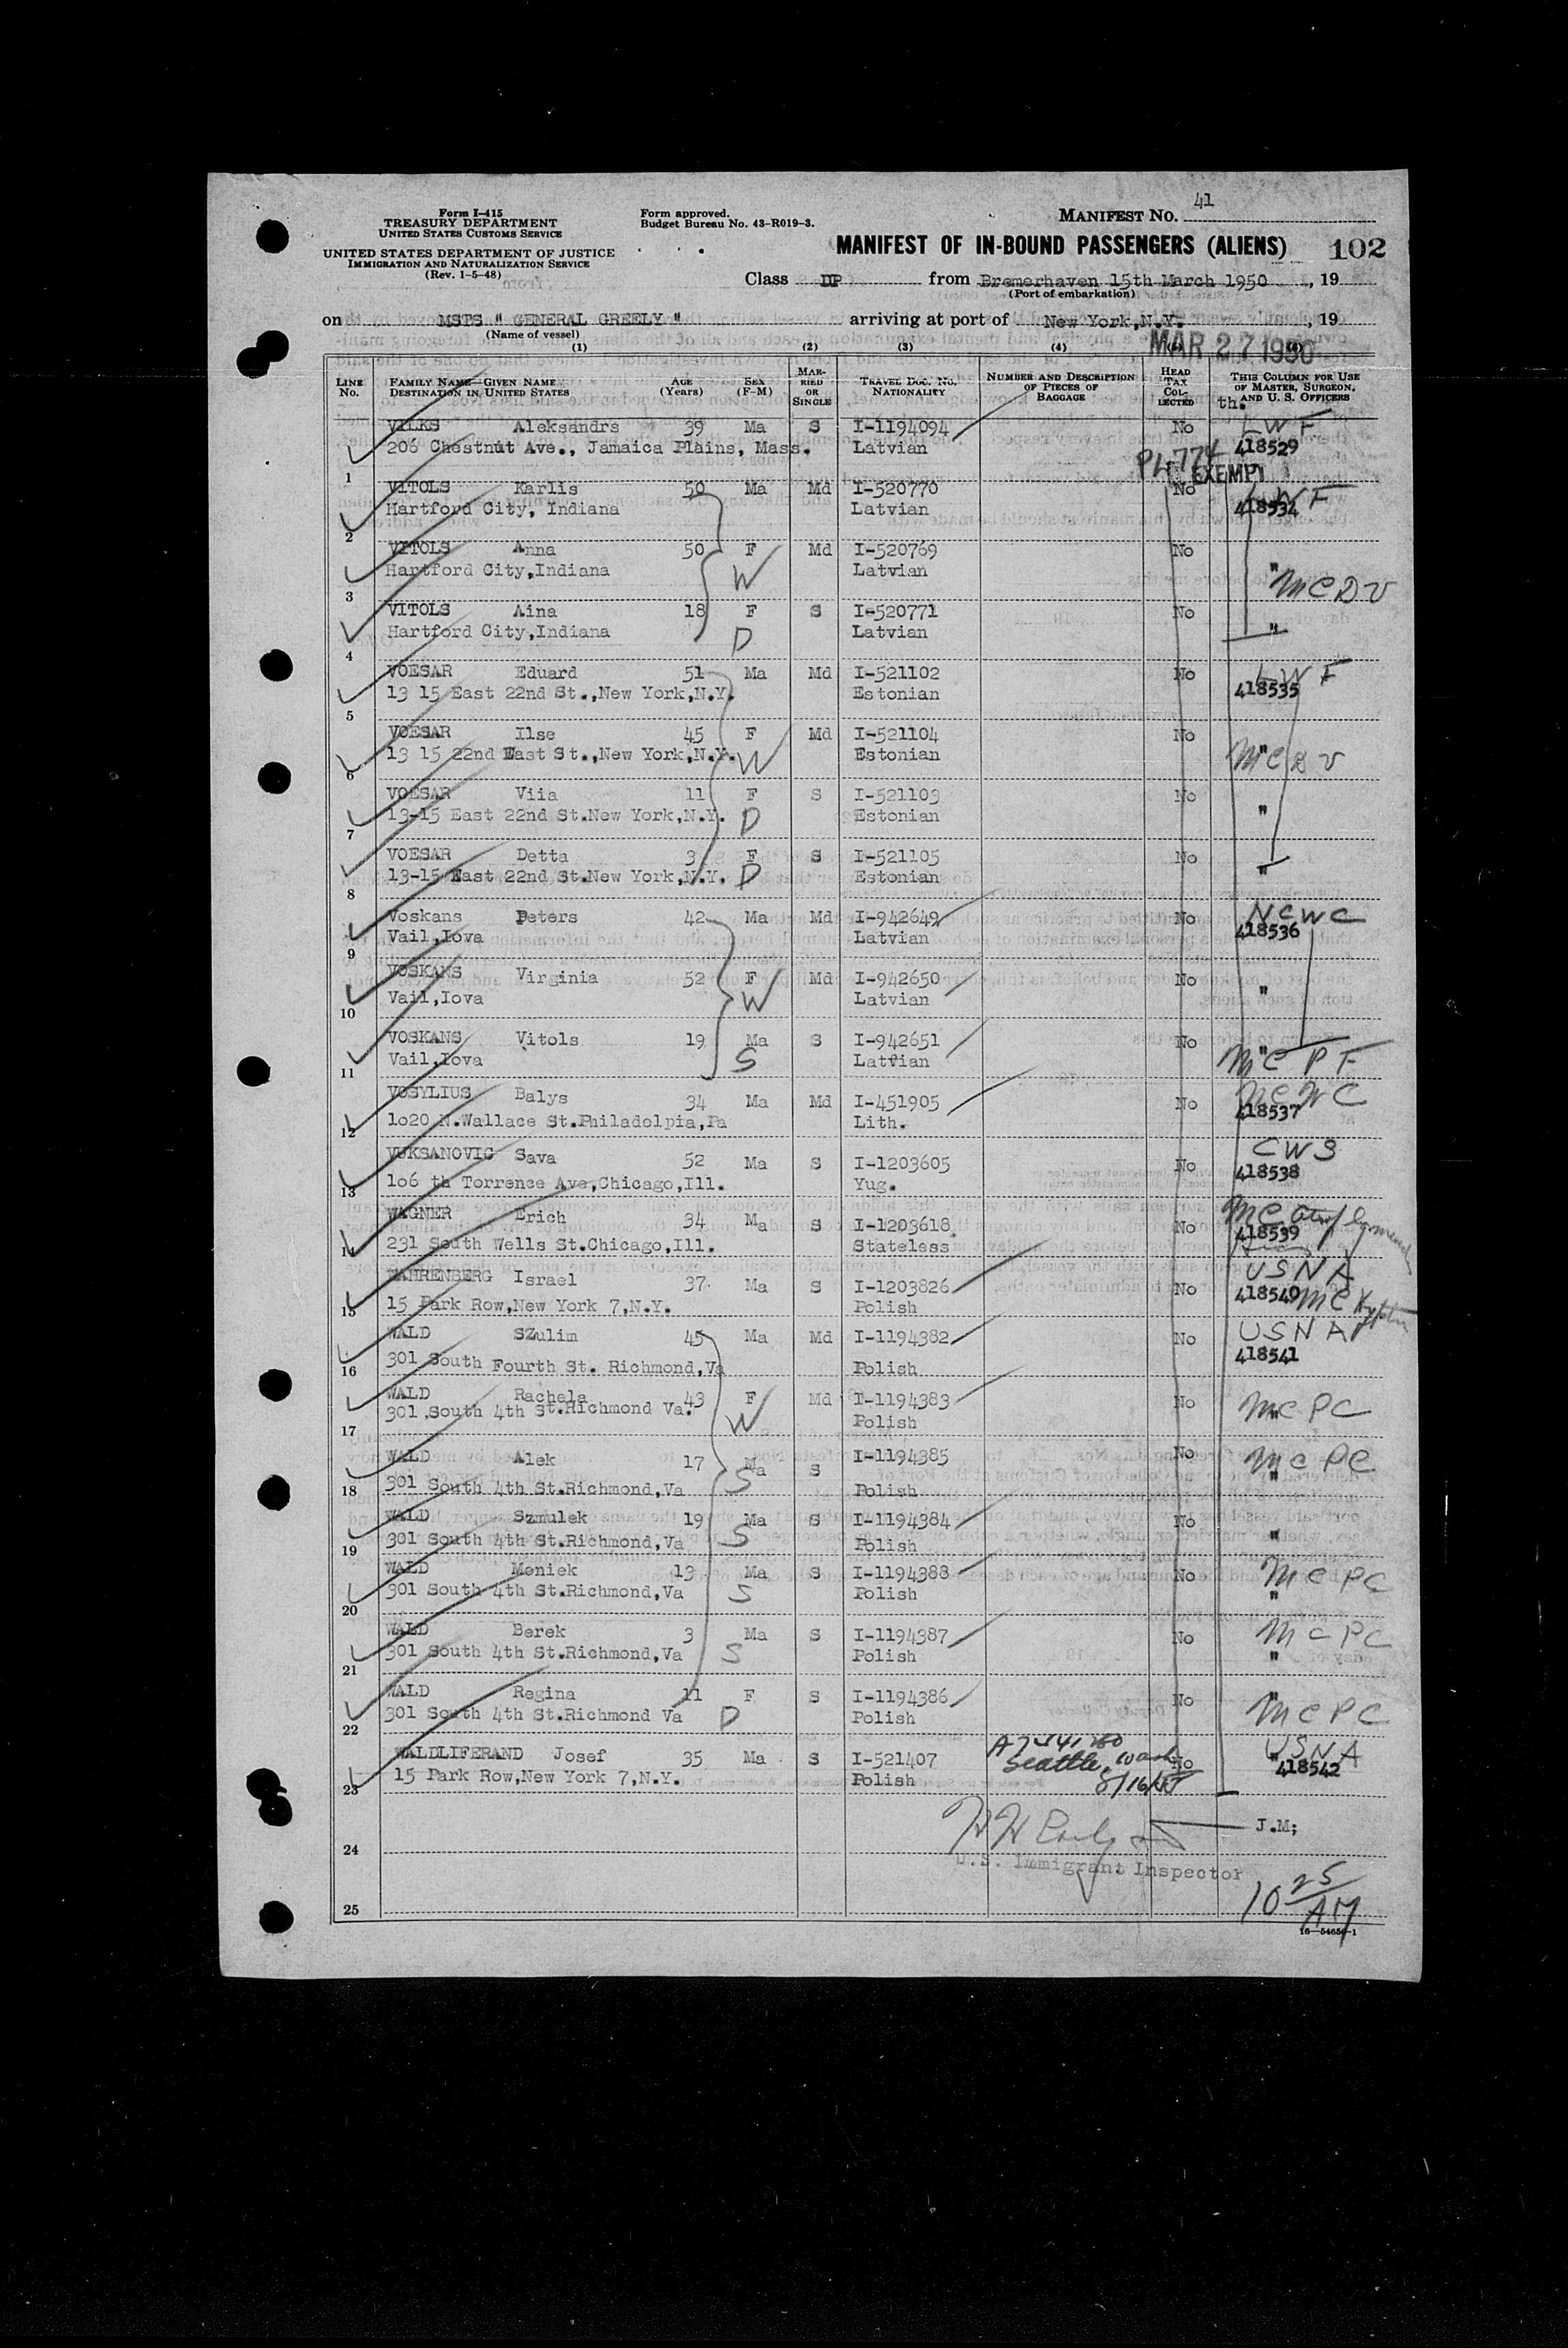 41
Form I-415
TREASURY DEPARTMENT
UNITED STATES CUSTOMS SERVICE
Form approved.
Budget Bureau No. 43-R019-3.
MANIFEST NO.
UNITED STATES DEPARTMENT OF JUSTICE
IMMIGRATION AND NATURALIZATION SERVICE
(Rev. 1-5-48)
MANIFEST OF IN-BOUND PASSENGERS (ALIENS) 102
Class DP from Bremerhaven 15th March 1950, 19
(Port of embarkation)
on MSTS " GENERAL GREELY " arriving at port of New York,N.Y., 19
(Name of vessel)
MAR 27 1950
(1) (2) (3) (4) (5) (6)
LINE NO. FAMILY NAME—GIVEN NAME DESTINATION IN UNITED STATES AGE (Years) SEX (F-M) MARRIED OR SINGLE TRAVEL DOC. NO. NATIONALITY NUMBER AND DESCRIPTION OF PIECES OF BAGGAGE HEAD TAX COLLECTED THIS COLUMN FOR USE OF MASTER, SURGEON, AND U. S. OFFICERS
th.
VILKS Aleksandrs 39 Ma S I-1194094 No LWF
206 Chestnut Ave., Jamaica Plains, Mass. Latvian 418529
1 PL 774 EXEMPT
VITOLS Karlis 50 Ma Md I-520770 No LWF
Hartford City, Indiana Latvian 418534
2
VITOLS Anna 50 F Md I-520769 No
Hartford City,Indiana W Latvian "
3 MCDV
VITOLS Aina 18 F S I-520771 No
Hartford City,Indiana D Latvian "
4
VOESAR Eduard 51 Ma Md I-521102 No LWF
13 15 East 22nd St.,New York,N.Y. Estonian 418535
5
VOESAR Ilse 45 F Md I-521104 No
13 15 22nd East St.,New York,N.Y. W Estonian " MC
6
VOESAR Viia 11 F S I-521103 No
13-15 East 22nd St.New York,N.Y. D Estonian "
7
VOESAR Detta 3 F S I-521105 No
13-15 East 22nd St.New York,N.Y. D Estonian "
8
Voskans Peters 42 Ma Md I-942649 No NCWC
Vail,Iova Latvian 418536
9
VOSKANS Virginia 52 F Md I-942650 No
Vail,Iova W Latvian "
10
VOSKANS Vitols 19 Ma S I-942651 No "
Vail,Iova S Latvian MCPF
11
VOSYLIUS Balys 34 Ma Md I-451905 No NCWC
1o20 N.Wallace St.Philadelpia,Pa Lith. 418537
12
VUKSANOVIC Sava 52 Ma S I-1203605 No CWS
1o6 th Torrence Ave,Chicago,Ill. Yug. 418538
13
WAGNER Erich 34 Ma S I-1203618 No MC
231 South Wells St.Chicago,Ill. Stateless 418539
14
WAHRENBERG Israel 37 Ma S I-1203826 No USNA
15 Park Row,New York 7,N.Y. Polish 418540 MC
15
WALD SZulim 45 Ma Md I-1194382 No USNA
301 South Fourth St. Richmond,Va Polish 418541
16
WALD Rachela 43 F Md I-1194383 No MCPC
301 South 4th St.Richmond Va. W Polish "
17
WALD Alek 17 Ma S I-1194385 No MCPC
301 South 4th St.Richmond,Va S Polish "
18
WALD Szmulek 19 Ma S I-1194384 No
301 South 4th St.Richmond,Va S Polish "
19
WALD Moniek 13 Ma S I-1194388 No MCPC
301 South 4th St.Richmond,Va S Polish "
20
WALD Berek 3 Ma S I-1194387 No MCPC
301 South 4th St.Richmond,Va S Polish "
21
WALD Regina 11 F S I-1194386 No "
301 South 4th St.Richmond Va D Polish MCPC
22
WALDLIFERAND Josef 35 Ma S I-521407 Seattle, Wash No USNA
15 Park Row,New York 7,N.Y. Polish " 418542
23
J.M;
24
U.S. Immigrant Inspector
10 25 AM
25
16—54656-1